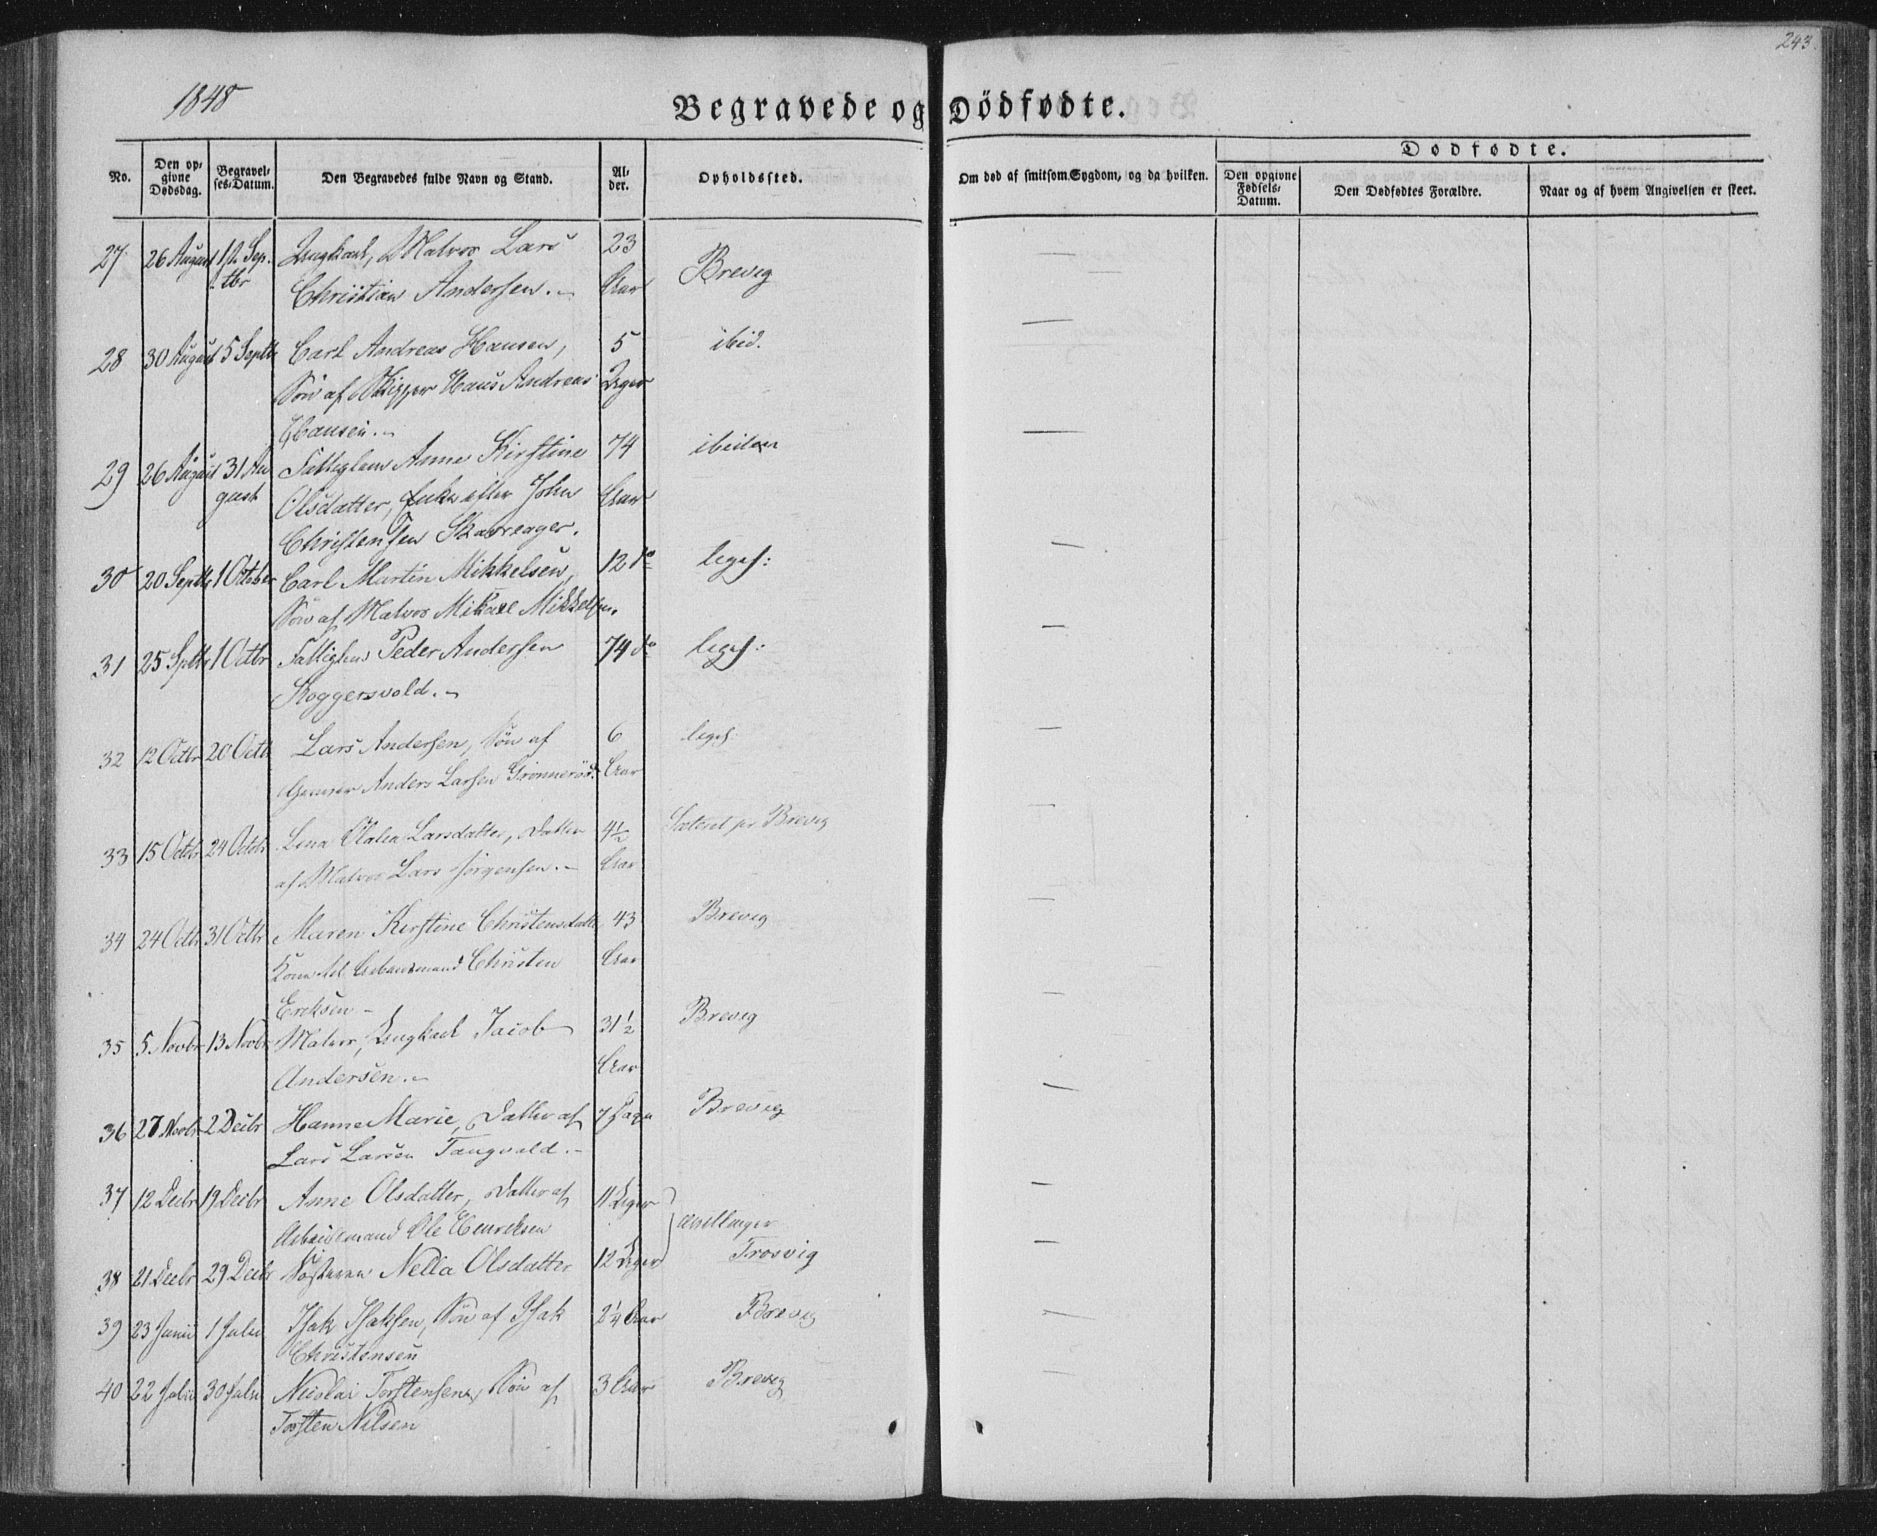 243.
1848
Begravede og Dödfødte.
No.
Den op-
givne
Dødsdag.
Begravel-
ses-Datum.
Den Begravedes fulde Navn og Stand.
Al-
der.
Opholdssted.
Om død af smitsom Sygdom, og da hvilken.
Dødfødte.
Den opgivne
Fødsels-
Datum.
Den Dødfødtes Forældre.
Naar og af hvem Angivelsen er skeet.
27 26 August 1ste Sep- Ungkarl, Matros Lars 23 Brevig
tbr Christian Andersen. Aar
28 30 August 5 Septbr Carl Andreas Hansen, 5 ibid.
Søn af Skipper Hans Andreas Uger
Hansen.
29 26 August 31 Au Fattiglem Anne Kirstine 74
gust Olsdatter, Enke efter John Aar
Christensen
30 20 Septbr 1 October Carl Martin Mikkelsen, 12 do liges:
Søn af Matros Mikael Mikkelsen.
31 25 Septbr 1 Octbr Fattiglem Peder Andersen 74 do liges:
Skoggersvold.
32 12 Octbr 20 Octb Lars Andersen, Søn af 6 liges
Anders Larsen Grønnerød Aar
33 15 Octbr 24 Octbr Lina Olalia Larsdatter, Datter 4½ Sætret pr Brevig
af Matros Lars Jørgensen. Aar
34 24 Octbr 31 Octbr Maren Kirstine Christensdatter 43 Brevig
Kone til Arbeidsmand Christen Aar
Eriksen
35 5 Novbr 13 Novbr Matros, Ungkarl Jacob 31½ Brevig
Andersen. Aar
36 27 Novbr 2 Decbr Hanne Marie, Datter af 7 Dage Brevig
Lars Larsen Tangvald.
37 12 Decbr 19 Decbr Anne Olsdatter, Datter af 11 Uger
Arbeidsmand Ole Henriksen tvillinger
38 21 Decbr 29 Decbr Søsteren Nella Olsdatter 12 Uger Trosvig
39 23 Junii 1 Julii Isak Isaksen, Søn af Isak 2¼ Aar Brevig
Christensen
40 22 Julii 30 Julii Nicolai Torstensen, Søn af 3 Aar Brevig
Torsten Nilsen